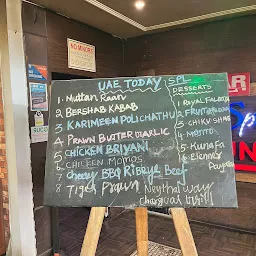 NO MINORS
UAE TODAY SPL
1. Muttan Raan
2 BERSHAB KABAB
3 KARIMEEN POLICHATHU
4 PRAWN BUTTER GARLIC
5 CHICKEN BRIYANI
6 CHICKEN MOMOS
7 Cheesy BBQ RIBEYE Beef
8 Tiger Prawn
DESSERTS
1. ROYAL FALOODA
2 FRUIT
3 CHIKU SHAKE
4 MOJITO
5 Kunafa
6
BAR
Sp